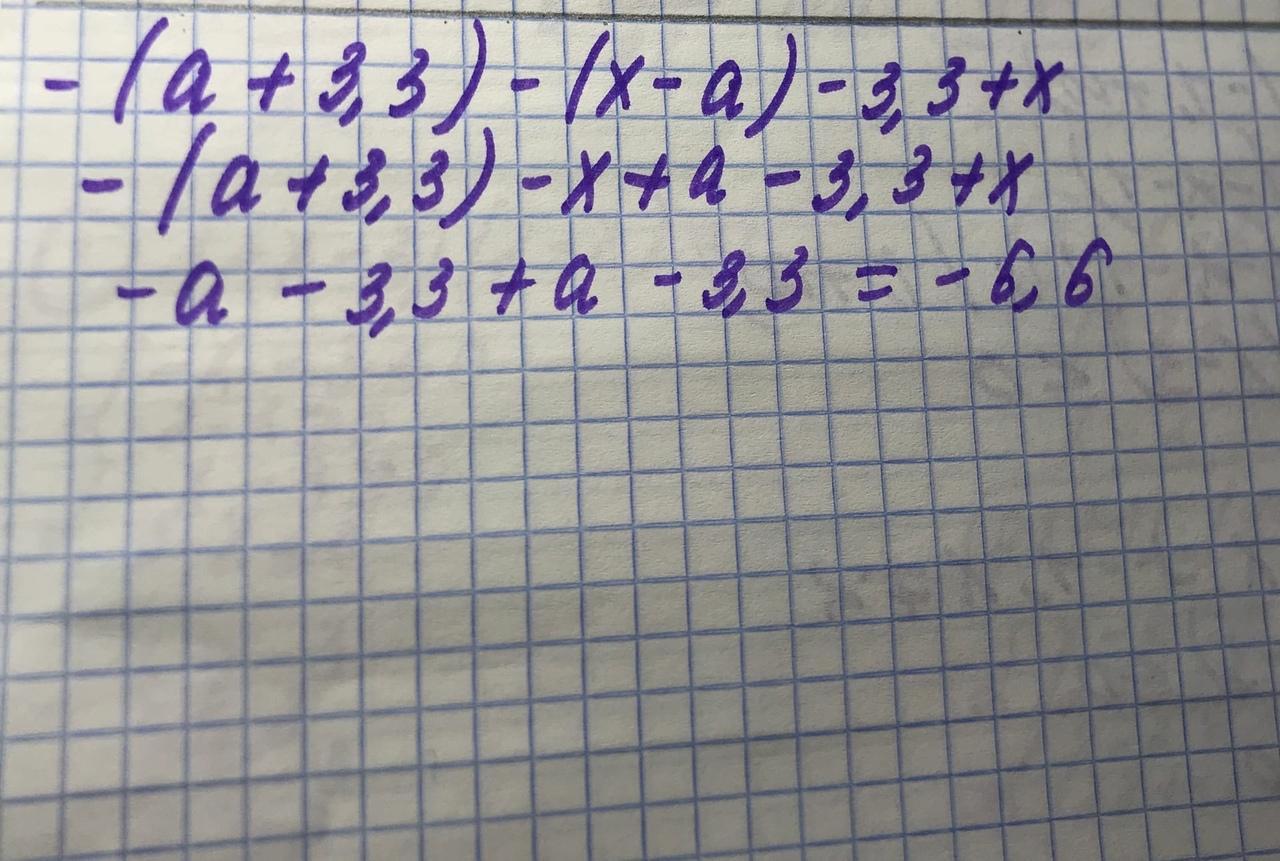 -(a+3,3)-(x-a)-3,3+x
-(a+3,3)-x+a-3,3+x
-a-3,3+a-3,3=-6,6